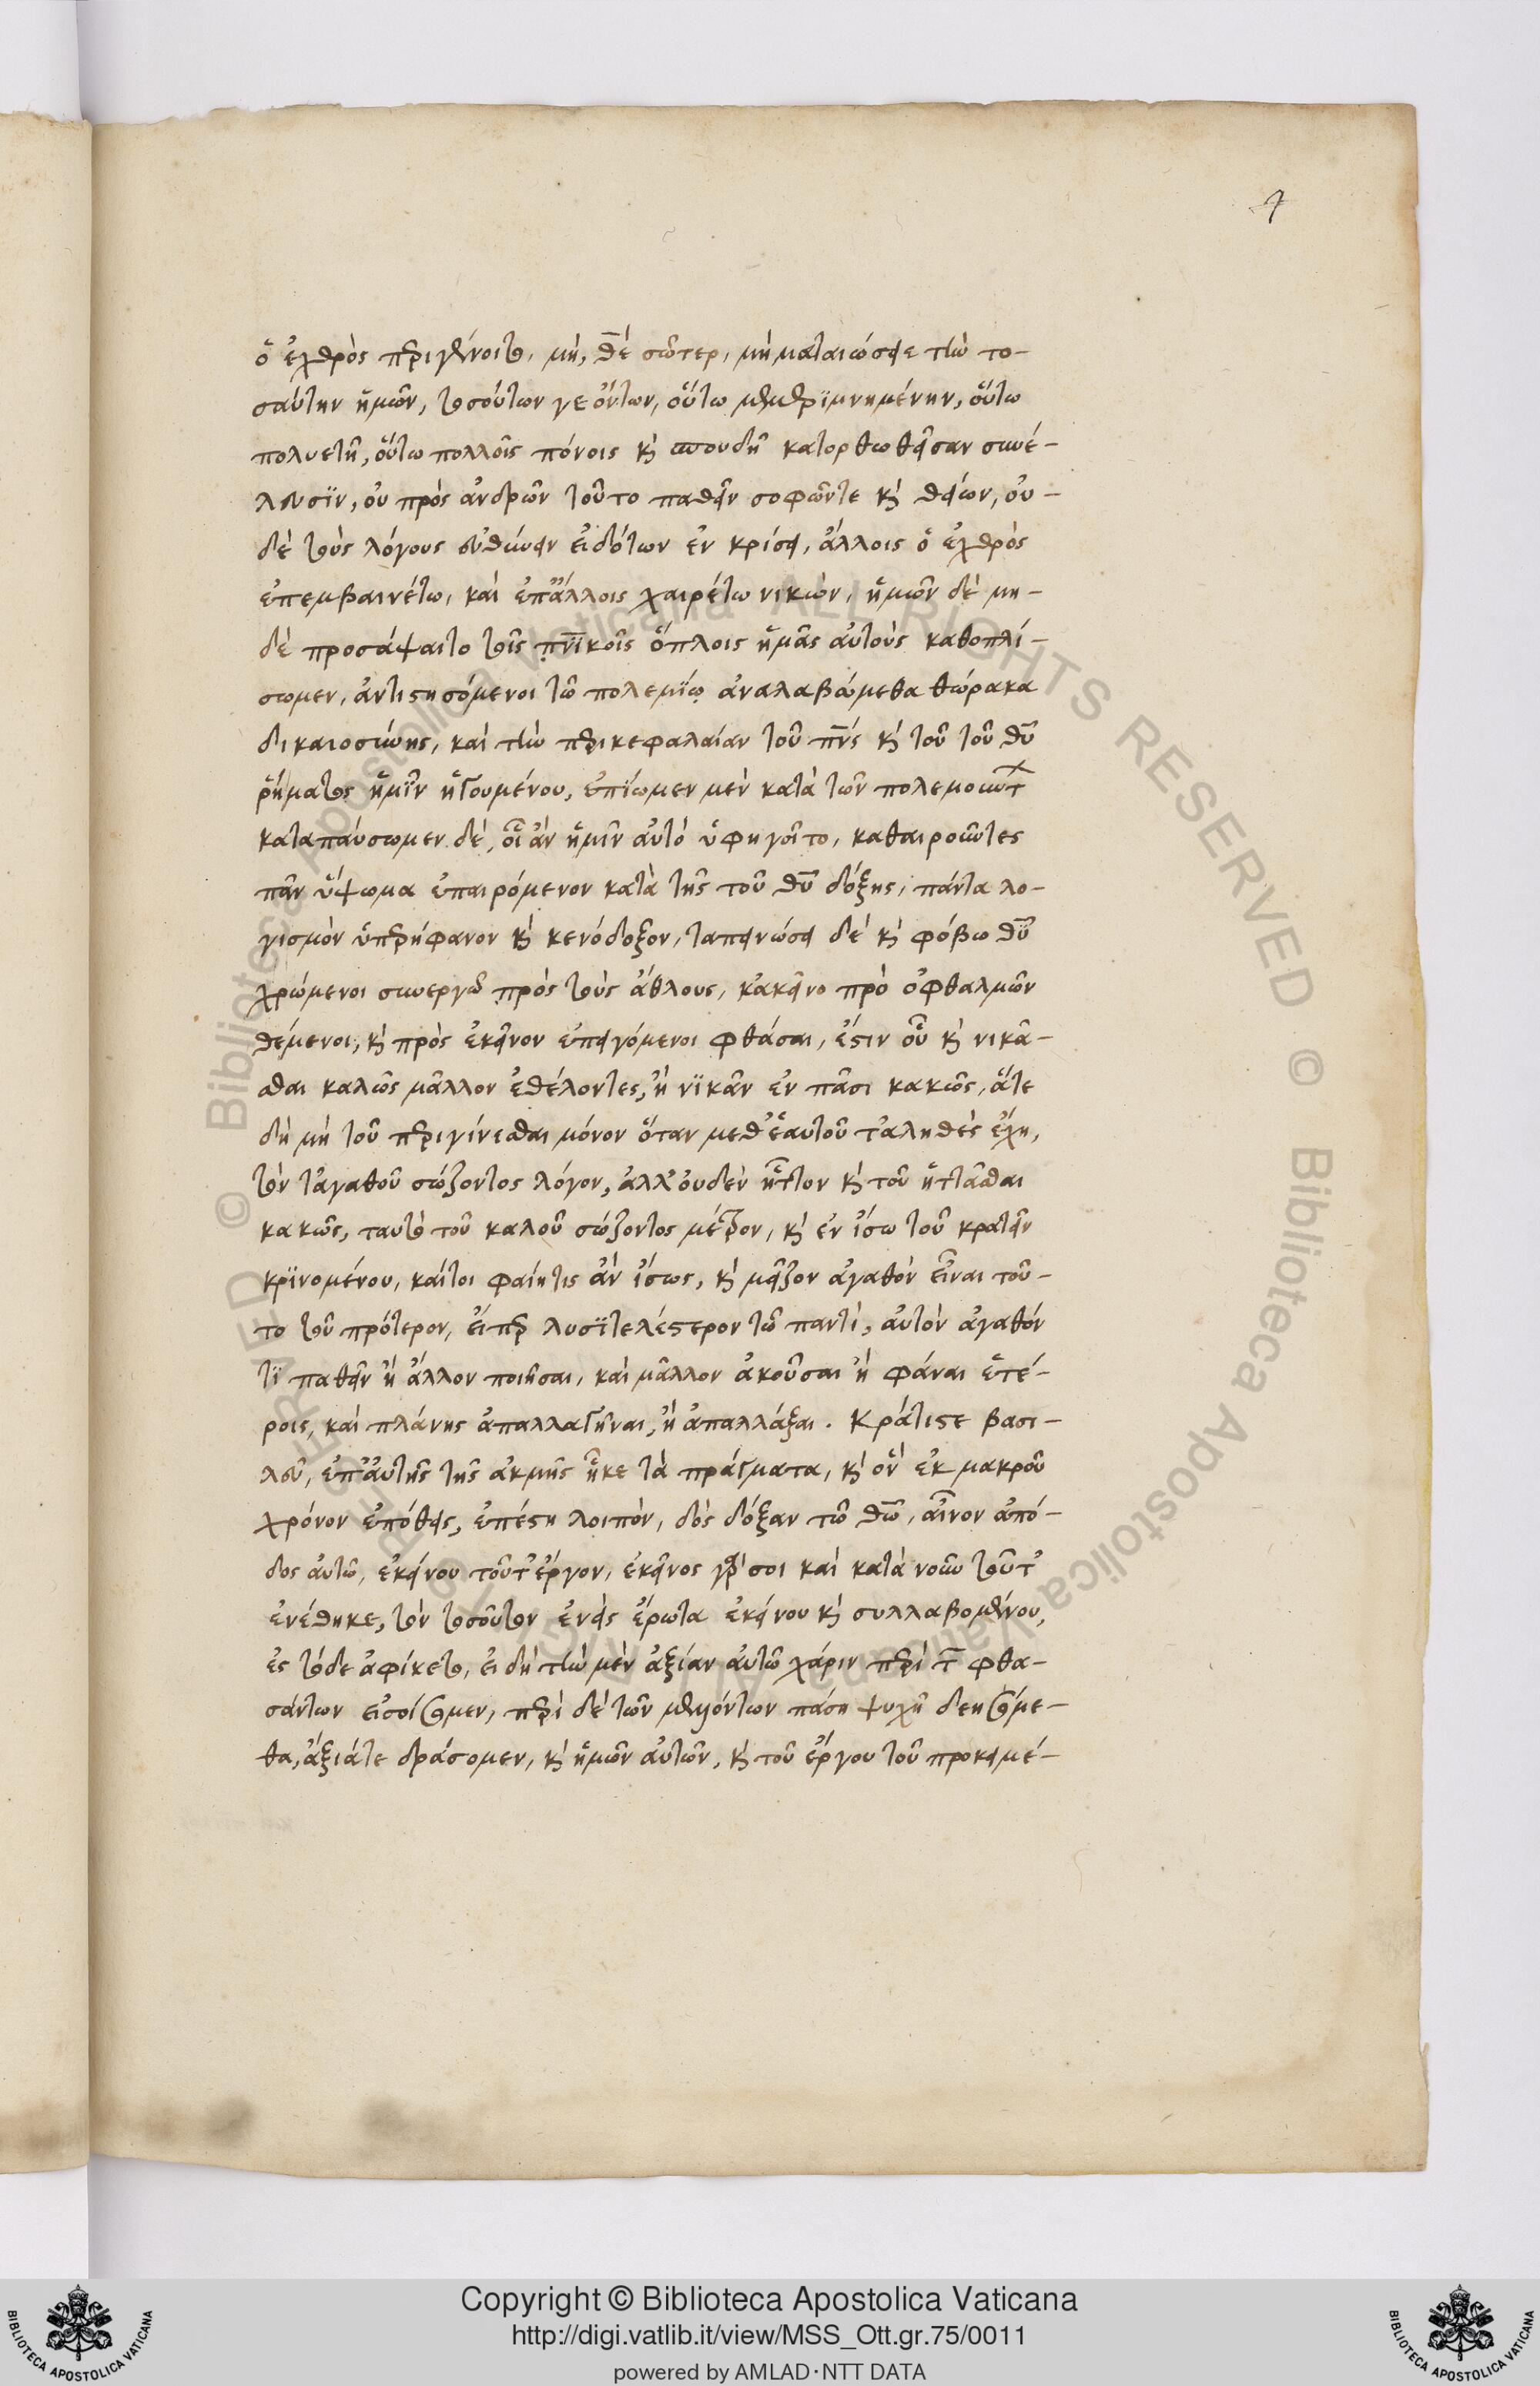 7
ὁ ἐχθρὸς περιγένοιτο, μὴ, θε σῶτερ, μὴ ματαιώσῃς τὴν το-
σαύτην ἡμῶν, τοσούτων γε ὄντων, οὕτω μεμεριμνημένην, οὕτω
πολυετῆ, οὕτω πολλοῖς πόνοις κ σπουδῆ κατορθωθεῖσαν συνέ-
λευσιν, οὐ πρὸς ἀνδρῶν τοῦτο παθεῖν σοφῶντε κ θείων, οὐ-
δὲ τοὺς λόγους εὐθύνειν εἰδότων ἐν κρίσει, ἄλλοις ὁ ἐχθρὸς
ἐπεμβαινέτω, καὶ ἐπ' ἄλλοις χαιρέτω νικῶν, ἡμῶν δὲ μη-
δὲ προσάψαιτο τοῖς πνικοῖς ὅπλοις ἡμᾶς αὐτοὺς καθοπλί-
σωμεν, ἀντιστησόμενοι τῶ πολεμίῳ ἀναλαβώμεθα θώρακα
δικαιοσύνης, καὶ τὴν περικεφαλαίαν τοῦ πνς κ τοῦ τοῦ θυ
ῥήματος ἡμῖν ἡγουμένου, ἐπίωμεν μὲν κατὰ τῶν πολεμούντ
καταπαύσωμεν δὲ, οἷ ἂν ἡμῖν αὐτὸ ὑφηγοῖτο, καθαιροῦντες
πᾶν ὕψωμα ἐπαιρόμενον κατὰ τῆς τοῦ θυ δόξης, πάντα λο-
γισμὸν ὑπερήφανον κ κενόδοξον, ταπεινώσει δὲ κ φόβω θυ
χρώμενοι συνεργῶ πρὸς τοὺς ἄθλους, κἀκεῖνο πρὸ ὀφθαλμῶν
θέμενοι, κ πρὸς ἐκεῖνον ἐπειγόμενοι φθάσαι, ἔστιν οὗ κ νικᾶ-
σθαι καλῶς μᾶλλον ἐθέλοντες, ἢ νικᾶν ἐν πᾶσι κακῶς, ἅτε
δὴ μὴ τοῦ περιγίνεσθαι μόνον ὅταν μεθ' ἑαυτοῦ τἀληθὲς ἔχη,
τὸν τἀγαθοῦ σώζοντος λόγον, ἀλλ' οὐδὲν ἧττον κ τοῦ ἡττᾶσθαι
κακῶς, ταυτὸ τοῦ καλοῦ σώζοντος μέτρον, κ ἐν ἴσω τοῦ κρατεῖν
κρινομένου, καίτοι φαίητις ἂν ἴσως, κ μεῖζον ἀγαθὸν εἶναι τοῦ-
το τοῦ πρότερον, εἴπερ λυσιτελέστερον τῶ παντὶ, αὐτὸν ἀγαθόν
τι παθεῖν ἢ ἄλλον ποιῆσαι, καὶ μᾶλλον ἀκοῦσαι ἢ φάναι ἑτέ-
ροις, καὶ πλάνης ἀπαλλαγῆναι, ἢ ἀπαλλάξαι. Κράτιστε βασι-
λεῦ, ἐπ' αὐτῆς τῆς ἀκμῆς ἧκε τὰ πράγματα, κ ὃν ἐκ μακροῦ
χρόνον ἐπόθεις, ἐπέστη λοιπὸν, δὸς δόξαν τῶ θω, αἶνον ἀπό-
δος αὐτῶ, ἐκείνου τοῦτ' ἔργον, ἐκεῖνος γάρ σοι καὶ κατὰ νοῦν τοῦτ'
ἐνέθηκε, τὸν τοσοῦτον ἐνεὶς ἔρωτα ἐκείνου κ συλλαβομένου,
ἐς τόδε ἀφίκετο, εἰ δὴ τὴν μὲν ἀξίαν αὐτῶ χάριν περὶ τ φθα-
σάντων εἰσοίσομεν, περὶ δὲ τῶν μελλόντων πάση ψυχῆ δεησόμε-
θα, ἄξιάτε δράσομεν, κ ἡμῶν αὐτῶν, κ τοῦ ἔργου τοῦ προκειμέ-
Copyright © Biblioteca Apostolica Vaticana
http://digi.vatlib.it/view/MSS_Ott.gr.75/0011
powered by AMLAD·NTT DATA